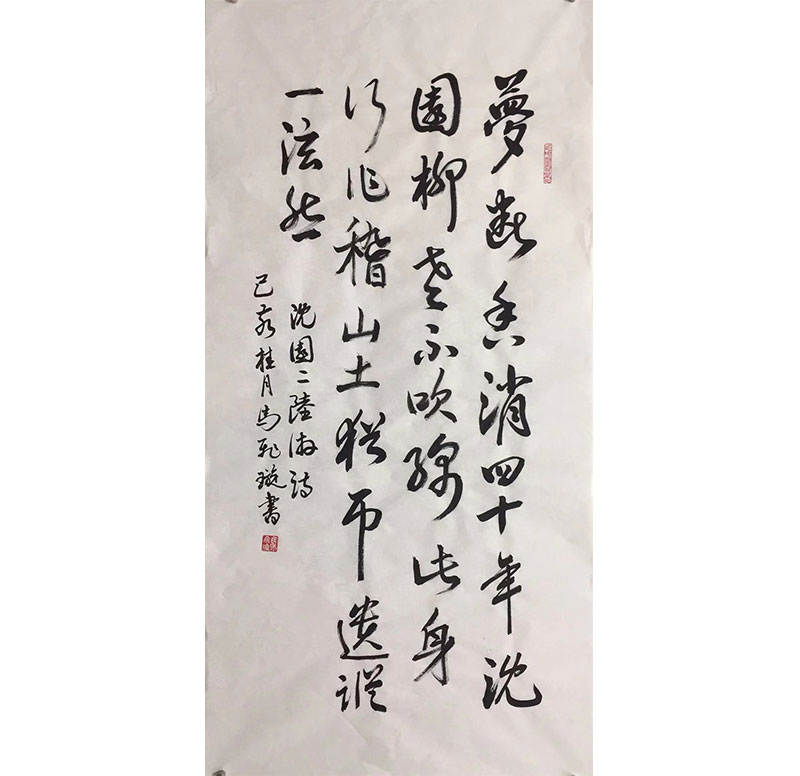 夢斷香消四十年沈
園柳老不吹綿此身
行作稽山土猶吊遺蹤
一泫然
沈園二陸游詩
己亥桂月馬璇書